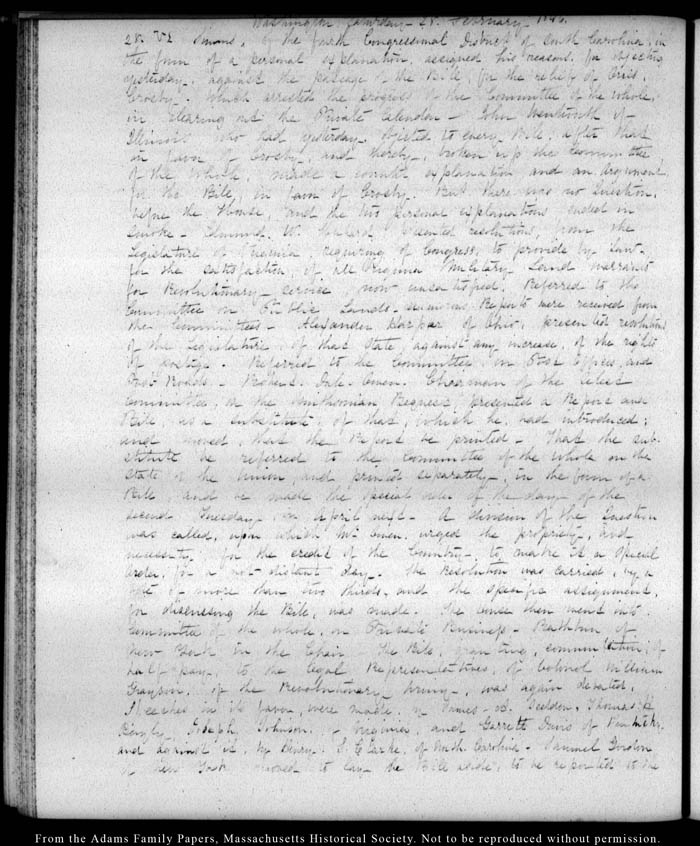 Washington Saturday 28. February 1846.
28. VI. Simms, of the fourth Congressional District of South Carolina, in
the form of a personal explanation, assigned his reasons for objecting
yesterday, against the passage of the Bill, for the relief of
Crosby. which arrested the progress of the Committee of the whole,
in clearing out the Private Calendar — John Wentworth of
Illinois who had yesterday, objected to every Bill, after that
in favor of Crosby, and thereby, broken up the Committee
of the whole, made a counter explanation and an argument,
for the Bill, in favor of Crosby. But there was no question,
before the House, and the two personal explanations ended in
smoke — Edmund W. Hubard, presented resolutions, from the
Legislature of Virginia, requiring of Congress, to provide by Law,
for the satisfaction, of all Virginia Military Land warrants
for Revolutionary service now unsatisfied. Referred to the
Committee on Public Lands — numerous Reports were received from
the Committees — Alexander Harper of Ohio, presented resolutions
of the Legislature, of that State, against any increase, of the rates
of postage. Referred to the Committee, on Post Offices, and
Post Roads. — Robert Dale Owen. Chairman of the select
Committee, on the Smithsonian Bequest, presented a Report and
Bill, as a substitute, of that, which he, had introduced;
and moved, that the Report be printed — That the sub-
stitute be referred to the Committee of the whole on the
State of the Union and printed separately, in the form of a
Bill, and be made the special order of the day of the
second Tuesday, in April next — A division of the Question
was called, upon which Mr Owen, urged the propriety, and
necessity, for the credit of the Country, to make it a special
order, for a not distant day. The Resolution was carried, by a
vote of more than two thirds, and the specific assignment,
for discussing the Bill, was made. The House then went into
Committee of the whole, on Private Business — Rathbun of
New York in the Chair — The Bill, granting, commutation, of
half pay, to the legal Representatives, of Colonel William
Grayson, of the Revolutionary Army, was again debated.
Speeches in its favor, were made, by James A. Seddon, Thomas H.
Bayly, Joseph Johnson, of Virginia, and Garrett Davis of Kentucky.
and against it, by Henry S. Clarke, of North Carolina — Samuel Gordon
of New York moved to lay the Bill aside, to be reported to the
From the Adams Family Papers, Massachusetts Historical Society. Not to be reproduced without permission.